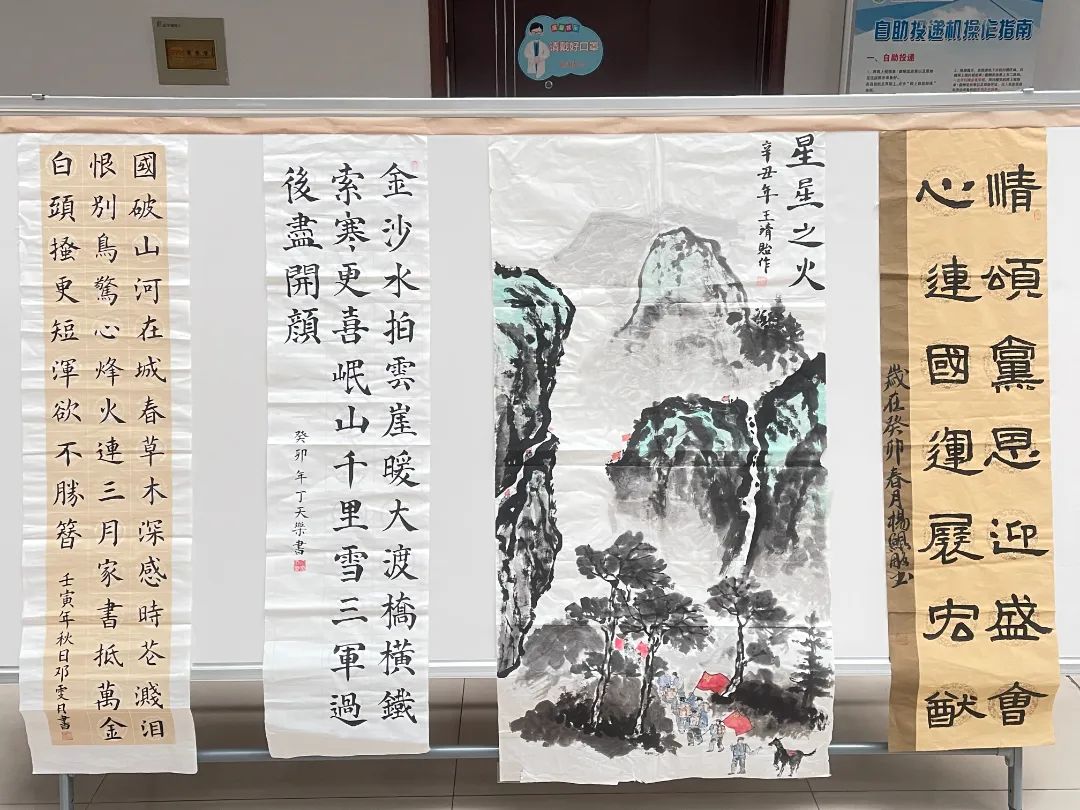 请戴好口罩
自助投递机操作指南
一、自助投递
國破山河在城春草木深感時花濺泪
恨別鳥驚心烽火連三月家書抵萬金
白頭搔更短渾欲不勝簪
壬寅年秋日邓雯月書
金沙水拍雲崖暖大渡橋橫鐵
索寒更喜岷山千里雪三軍過
後盡開顏
癸卯年丁天樂書
星星之火
辛丑年王靖貽作
情頌黨恩迎盛會
心連國運展宏猷
歲在癸卯春月楊